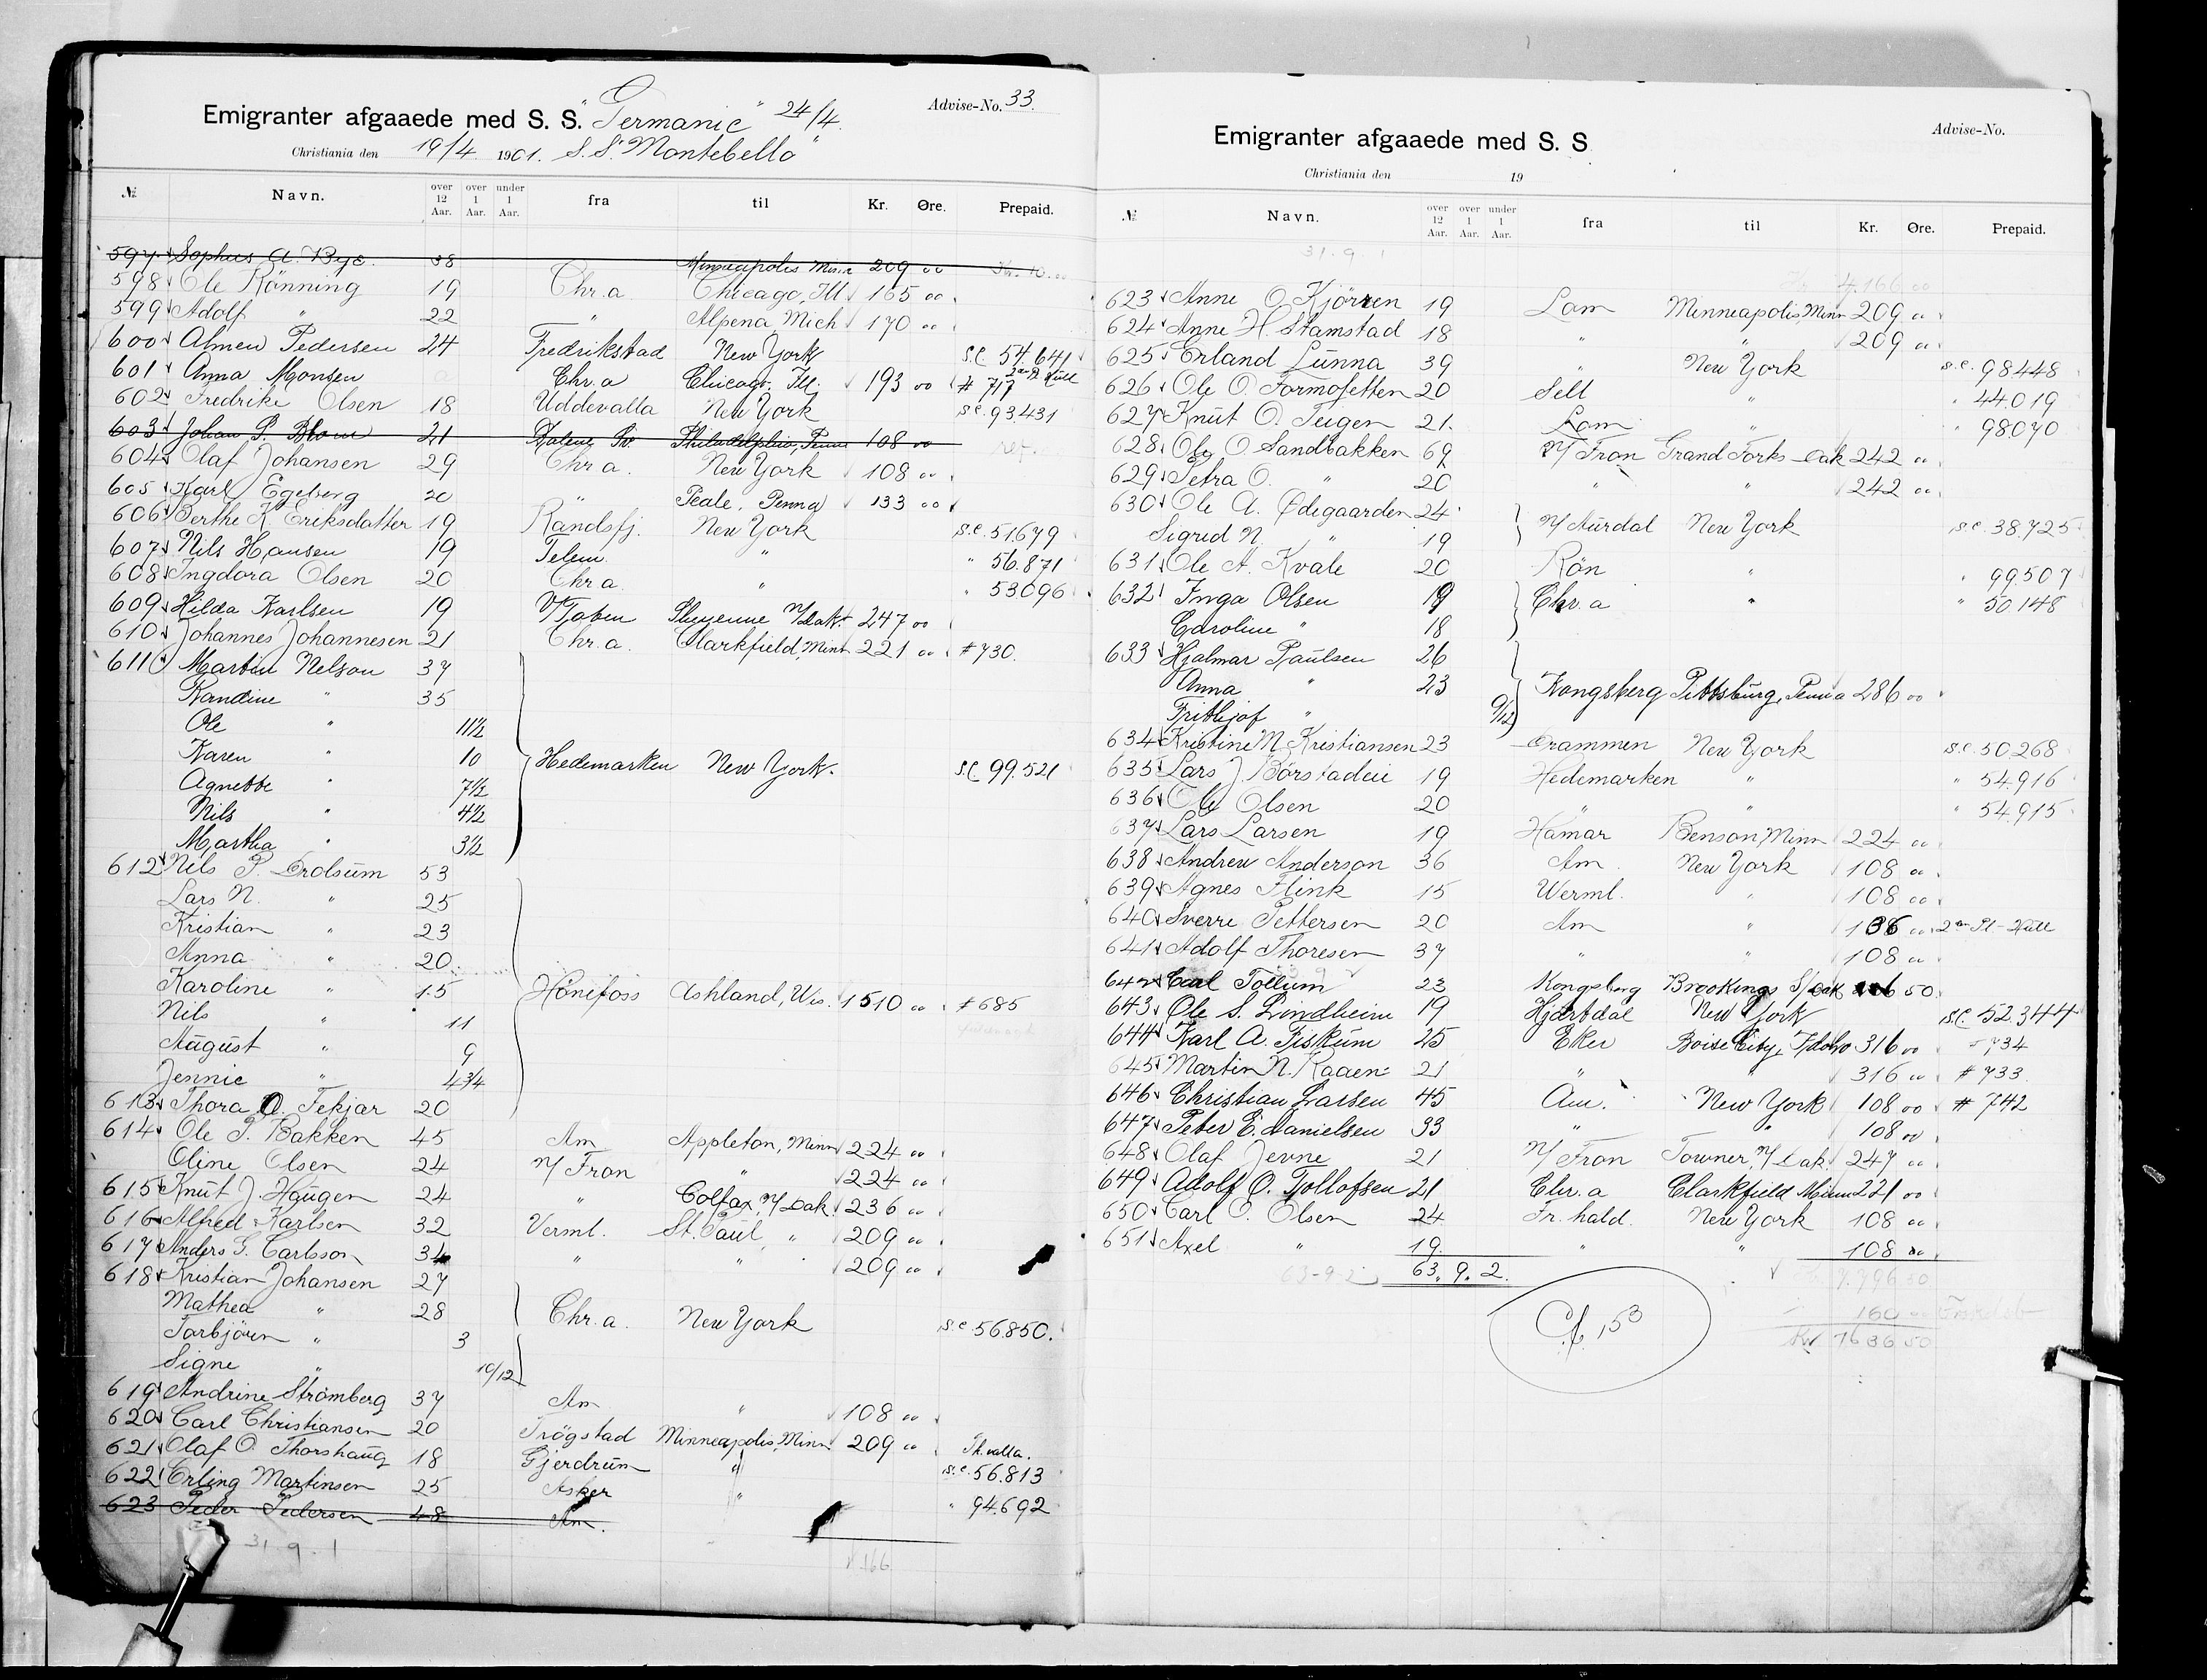 Emigranter afgaaede med S. S. "Germanic" 24/4. Advise-No. 33.
Christiania den 19/4 1901. S.S. "Montebello"
№ Navn. over 12 Aar. over 1 Aar. under 1 Aar. fra til Kr. Øre. Prepaid.
597 Sophus A. Bye 38 Minneapolis Minn 209 00
598 Ole Rönning 19 Chr.a Chicago, Ill 165 00
599 Adolf " 22 " Alpena, Mich 170 00
600 Almen Pedersen 24 Fredrikstad New York S.C. 54.641
601 Anna Monsen Chr.a Chicago, Ill. 193 00 # 717
602 Fredrike Olsen 18 Uddevalla New York S.C. 93431
603 Johan P. Blom 21 Philadelphia, Penna 108 00 ref.
604 Olaf Johansen 29 Chr.a. New York 108 00
605 Karl Egeberg 20 " Peale, Penna 133 00
606 Berthe K. Eriksdatter 19 Randsfj. New York S.C. 51679
607 Nils Hansen 19 Telem. " " 56.871
608 Ingdora Olsen 20 Chr.a. " " 53096
609 Hilda Karlsen 19 Sheyenne N/Dak. 247 00
610 Johannes Johannesen 21 Chr.a. Clarkfield, Minn 221 00 # 730.
611 Martin Nelson 37
Randine " 35
Ole " 11½
Karen " 10 Hedemarken New York. S.C. 99.521
Agnethe " 7½
Nils " 4½
Martha " 3½
612 Nils P. Drolsum 53
Lars N. " 25
Kristian " 23
Anna " 20.
Karoline " 15 Hönefoss Ashland, Wis. 1510 00 # 685
Nils " 11
August " 9
Jennie " 4¾
613 Thora O. Fekjar 20
614 Ole P. Bakken 45 Am Appleton, Minn 224 00
Oline Olsen 24 N/Fron " 224 00
615 Knut J. Haugen 24 " Colfax, N/Dak. 236 00
616 Alfred Karlsen 32 Verml. St. Paul, " 209 00
617 Anders G. Carlsson 34 " " 209 00
618 Kristian Johansen 27
Mathea " 28 Chr.a. New York S.C 56850.
Torbjörn " 3
Signe " 10/12
619 Andrine Strömberg 37 Am " 108 00
620 Carl Christiansen 20 Trögstad Minneapolis, Minn 209 00
621 Olaf O. Thorshaug 18 Gjerdrum " S.C. 56.813
622 Erling Martinsen 25 Asker " " 94.692
623 Peder Pedersen 48 Am.
31.9.1
Emigranter afgaaede med S. S. Advise-No.
Christiania den 19
№ Navn. over 12 Aar. over 1 Aar. under 1 Aar. fra til Kr. Øre. Prepaid.
31.9.1
4.166 00
623 Anne O. Kjörren 19 Lom Minneapolis, Minn 209 00
624 Anne H. Stamstad 18 " " 209 00
625 Erland Lunna 39 " New York S.C. 98448
626 Ole O. Formofetten 20 Sell " " 44.019
627 Knut O. Teigen 21. Lom " " 98070
628 Ole O Sandbakken 69 N/Fron Grand Forks Dak 242 00
629 Petra O. " 20 " " 242 00
630 Ole A. Ødegaarden 24
Sigrid N. " 19 N/Aurdal New York S.C. 38.725
631 Ole A. Kvale 20 Rön " " 99.507
632 Inga Olsen 19 Chr.a " " 50148
Caroline " 18
633 Hjalmar Paulsen 26
Anna " 23 Kongsberg Pittsburg, Penna 286 00
Frithjof " 9/12
634 Kristine M. Kristiansen 23 Drammen New York S.C. 50268
635 Lars J Börstadeie 19 Hedemarken " " 54.916
636 Ole Olsen 20 " " " 54.915
637 Lars Larsen 19 Hamar Benson, Minn 224 00
638 Andrew Anderson 36 Am. New York 108 00
639 Agnes Flink 15 Werml. " 108 00
640 Sverre Pettersen 20 Am " 136 00
641 Adolf Thoresen 37 " " 108 00
642 Carl Tollum 23 Kongsberg Brookings S/Dak 50
643 Ole S. Lindheim 19 Hjartdal New York S.C. 52.344
644 Karl A. Fiskum 25 Eker Boise City, Idaho 316 00 734
645 Martin N. Raaen 21 " " 316 00 # 733
646 Christian Larsen 45 Am. New York 108 00 # 742
647 Peter E. Danielsen 33 " " 108 00
648 Olaf Jevne 21 N/Fron Towner, N/Dak. 247 00
649 Adolf O. Tollofsen 21 Chr.a Clarkfield Minn 221 00
650 Carl O. Olsen 24 Fr.hald. New York 108 00
651 Axel " 19. " " 108 00
63-9-2 63. 9. 2.
160
7636 50